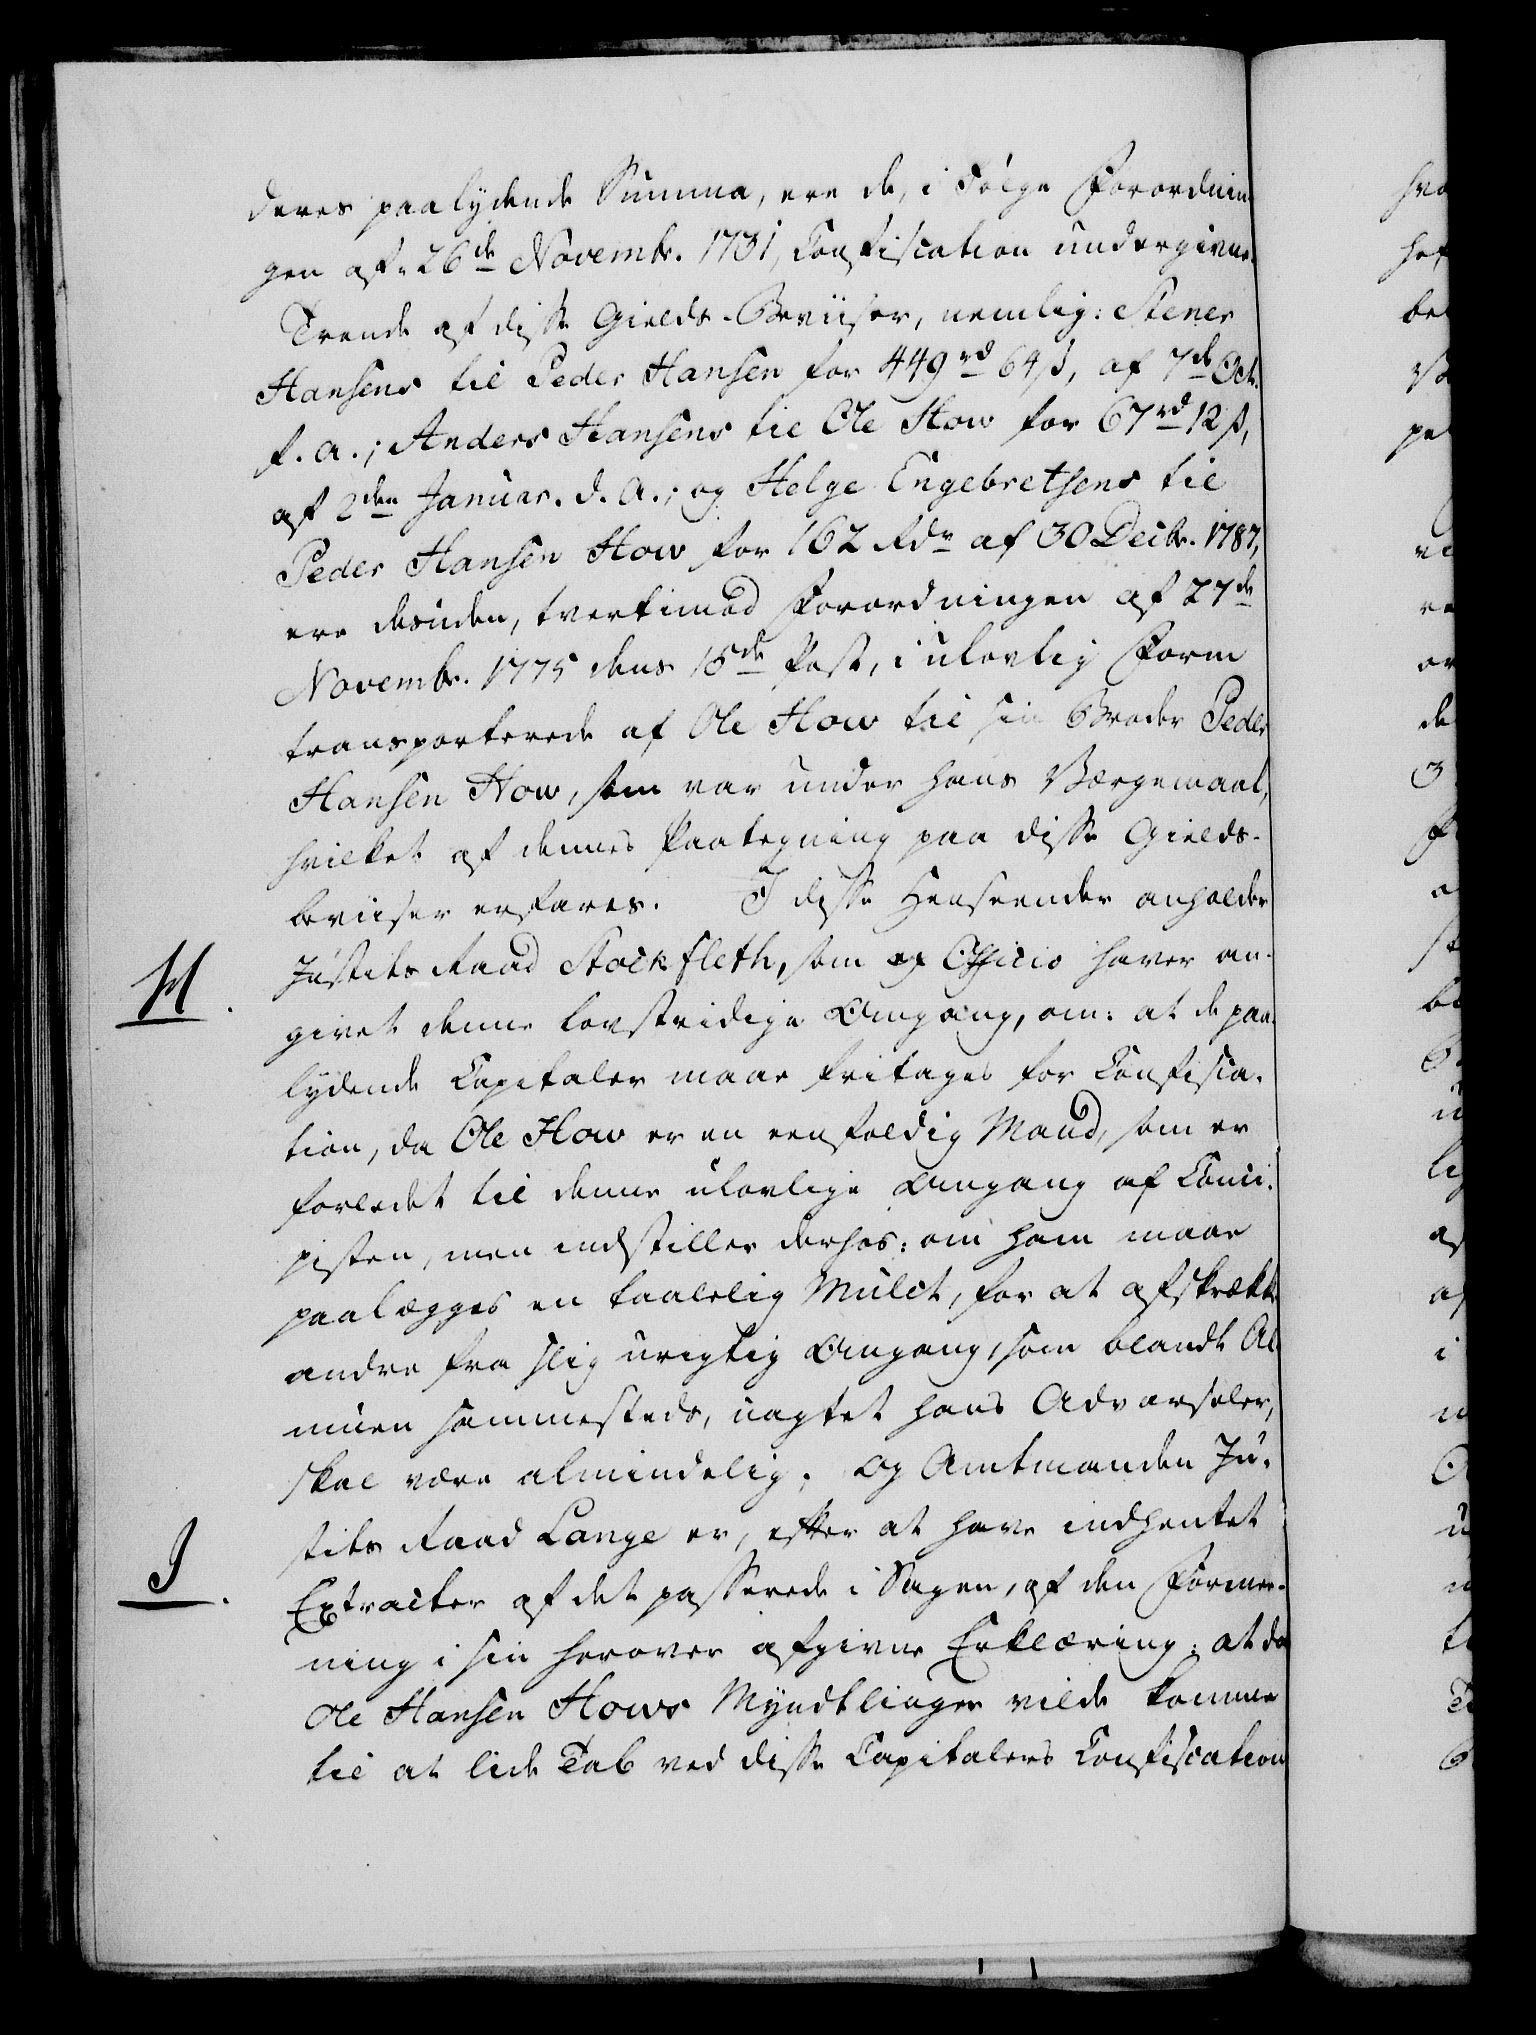 deres paalydende Summa, ere de, i Følge Forordnin-
gen af 26de Novembr. 1731, Confiscation undergivne.
Trende af disse Gields-Beviiser, nemlig: Stener
Hansens til Peder Hansen for 449rd 64ß, af 7de Octr.
f. a.; Anders Hansens til Ole How for 67rd 12ß,
af 2den Januar. d. A.; og Helge Engebretsens til
Peder Hansen How for 162 Rdr af 30 Decbr. 1787,
ere desuden, tvertimod Forordningen af 27de
Novembr. 1775 dens 15de Post, i ulovlig Form
transporterede af Ole How til sin Broder Peder
Hansen How, som var under hans Værgemaal,
hvilket af dennes Paategning paa disse Gields-
beviiser erfares. I disse Henseender anholder
H. Justits Raad Stockfleth, som ex Officio haver an-
givet denne lovstridige Omgang, om: at de paa-
lydende Capitaler maae fritages for Confisca-
tion, da Ole How er en eenfoldig Mand, som er
forledet til denne ulovlige Omgang af Conci-
pisten, men indstiller derhos: om ham maae
paalægges en taalelig Mulct, for at afskrække
andre fra slig urigtig Omgang, som blandt Al-
muen sammesteds, uagtet hans Advarseler,
skal være almindelig. Og Amtmanden Ju-
I. stits Raad Lange er, efter at have indhentet
Extracter af det passerede i Sagen, af den Formee-
ning i sin herover afgivne Erklæring: at da
Ole Hansen Hows Myndtlinger vilde komme
til at lide Tab ved disse Capitalers Confiscation